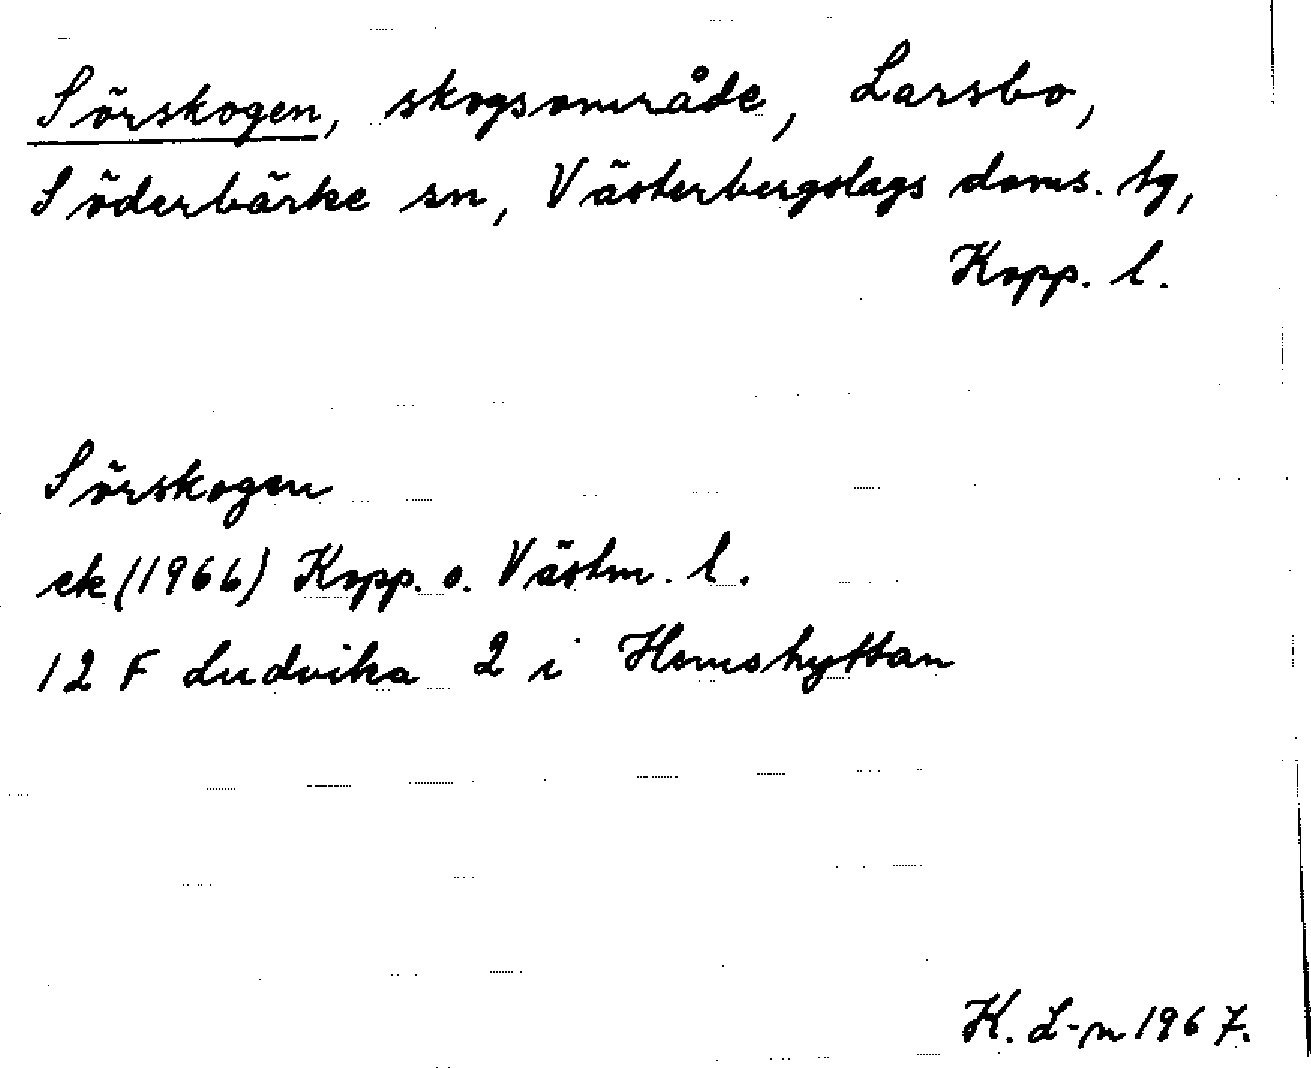 Sörskogen, skogsområde, Larsbo,
Söderbärke sn, Västerbergslags doms. tg,
Kopp. l.
Sörskogen
ek (1966) Kopp. o. Västm. l.
12 F Ludvika 2 i Homshyttan
K. L-n 1967.